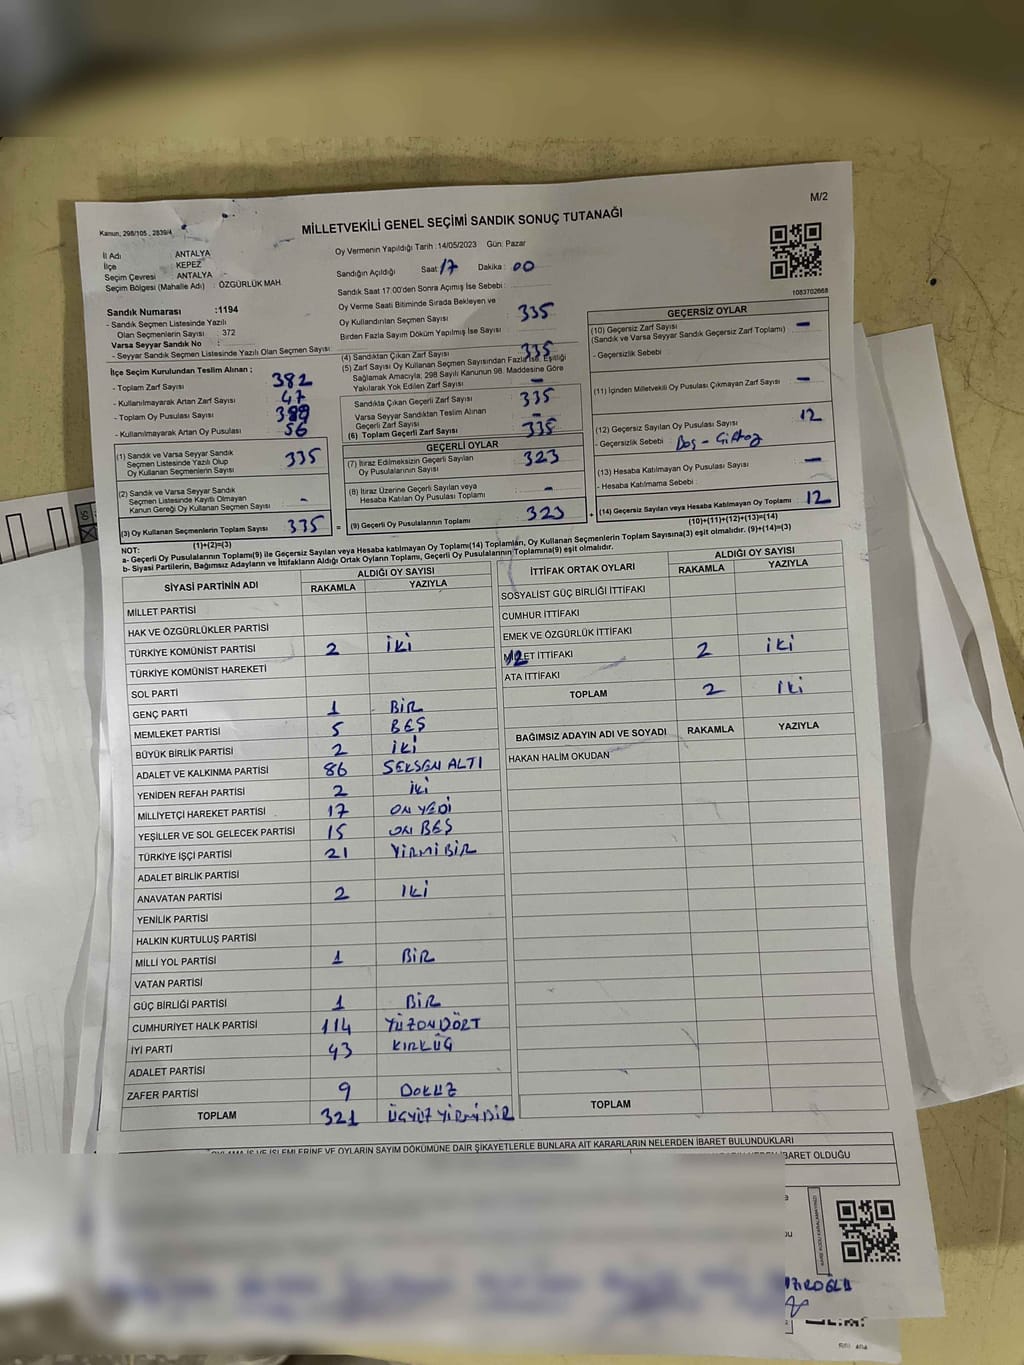 M/2
Kanun, 298/105 , 2839/4
MİLLETVEKİLİ GENEL SEÇİMİ SANDIK SONUÇ TUTANAĞI
İl Adı : ANTALYA
İlçe : KEPEZ
Seçim Çevresi : ANTALYA
Seçim Bölgesi (Mahalle Adı) : ÖZGÜRLÜK MAH.
Oy Vermenin Yapıldığı Tarih : 14/05/2023 Gün: Pazar
Sandığın Açıldığı Saat : 17 Dakika : 00
Sandık Saat 17.00'den Sonra Açılmış İse Sebebi :
1083702668
Sandık Numarası : 1194
- Sandık Seçmen Listesinde Yazılı
Olan Seçmenlerin Sayısı : 372
Varsa Seyyar Sandık No :
- Seyyar Sandık Seçmen Listesinde Yazılı Olan Seçmen Sayısı :
Oy Verme Saati Bitiminde Sırada Bekleyen ve
Oy Kullandırılan Seçmen Sayısı : 335
Birden Fazla Sayım Döküm Yapılmış İse Sayısı :
İlçe Seçim Kurulundan Teslim Alınan ;
- Toplam Zarf Sayısı : 382
- Kullanılmayarak Artan Zarf Sayısı : 47
- Toplam Oy Pusulası Sayısı :
- Kullanılmayarak Artan Oy Pusulası : 56
(1) Sandık ve Varsa Seyyar Sandık
Seçmen Listesinde Yazılı Olup
Oy Kullanan Seçmenlerin Sayısı 335
(2) Sandık ve Varsa Seyyar Sandık
Seçmen Listesinde Kayıtlı Olmayan
Kanun Gereği Oy Kullanan Seçmen Sayısı -
(3) Oy Kullanan Seçmenlerin Toplam Sayısı 335
(1)+(2)=(3)
(4) Sandıktan Çıkan Zarf Sayısı : 335
(5) Zarf Sayısı Oy Kullanan Seçmen Sayısından Fazla ise, Eşitliği
Sağlamak Amacıyla; 298 Sayılı Kanunun 98. Maddesine Göre
Yakılarak Yok Edilen Zarf Sayısı : -
Sandıkta Çıkan Geçerli Zarf Sayısı : 335
Varsa Seyyar Sandıktan Teslim Alınan
Geçerli Zarf Sayısı : -
(6) Toplam Geçerli Zarf Sayısı : 335
GEÇERLİ OYLAR
(7) İtiraz Edilmeksizin Geçerli Sayılan
Oy Pusulalarının Sayısı : 323
(8) İtiraz Üzerine Geçerli Sayılan veya
Hesaba Katılan Oy Pusulası Toplamı : -
= (9) Geçerli Oy Pusulalarının Toplamı : 323
GEÇERSİZ OYLAR
(10) Geçersiz Zarf Sayısı : -
(Sandık ve Varsa Seyyar Sandık Geçersiz Zarf Toplamı)
- Geçersizlik Sebebi :
(11) İçinden Milletvekili Oy Pusulası Çıkmayan Zarf Sayısı : -
(12) Geçersiz Sayılan Oy Pusulası Sayısı : 12
- Geçersizlik Sebebi : Boş -
(13) Hesaba Katılmayan Oy Pusulası Sayısı : -
- Hesaba Katılmama Sebebi :
+ (14) Geçersiz Sayılan veya Hesaba Katılmayan Oy Toplamı : 12
(10)+(11)+(12)+(13)=(14)
NOT:
a- Geçerli Oy Pusulalarının Toplamı(9) ile Geçersiz Sayılan veya Hesaba katılmayan Oy Toplamı(14) Toplamları, Oy Kullanan Seçmenlerin Toplam Sayısına(3) eşit olmalıdır. (9)+(14)=(3)
b- Siyasi Partilerin, Bağımsız Adayların ve İttifakların Aldığı Ortak Oyların Toplamı, Geçerli Oy Pusulalarının Toplamına(9) eşit olmalıdır.
SİYASİ PARTİNİN ADI ALDIĞI OY SAYISI
RAKAMLA YAZIYLA
MİLLET PARTİSİ
HAK VE ÖZGÜRLÜKLER PARTİSİ
TÜRKİYE KOMÜNİST PARTİSİ 2 İKİ
TÜRKİYE KOMÜNİST HAREKETİ
SOL PARTİ
GENÇ PARTİ 1 BİR
MEMLEKET PARTİSİ 5 BEŞ
BÜYÜK BİRLİK PARTİSİ 2 İKİ
ADALET VE KALKINMA PARTİSİ 86 SEKSEN ALTI
YENİDEN REFAH PARTİSİ 2 İKİ
MİLLİYETÇİ HAREKET PARTİSİ 17 ON YEDİ
YEŞİLLER VE SOL GELECEK PARTİSİ 15 ON BEŞ
TÜRKİYE İŞÇİ PARTİSİ 21 YİRMİ BİR
ADALET BİRLİK PARTİSİ
ANAVATAN PARTİSİ 2 İKİ
YENİLİK PARTİSİ
HALKIN KURTULUŞ PARTİSİ
MİLLİ YOL PARTİSİ 1 BİR
VATAN PARTİSİ
GÜÇ BİRLİĞİ PARTİSİ 1 BİR
CUMHURİYET HALK PARTİSİ 114 YÜZONDÖRT
İYİ PARTİ 43 KIRKÜÇ
ADALET PARTİSİ
ZAFER PARTİSİ 9 DOKUZ
TOPLAM 321 ÜÇYÜZ YİRMİ BİR
İTTİFAK ORTAK OYLARI ALDIĞI OY SAYISI
RAKAMLA YAZIYLA
SOSYALİST GÜÇ BİRLİĞİ İTTİFAKI
CUMHUR İTTİFAKI
EMEK VE ÖZGÜRLÜK İTTİFAKI
MİLLET İTTİFAKI 2 İKİ
ATA İTTİFAKI
TOPLAM 2 İKİ
BAĞIMSIZ ADAYIN ADI VE SOYADI RAKAMLA YAZIYLA
HAKAN HALİM OKUDAN
TOPLAM
OYLAMA İŞ VE İŞLEMLERİNE VE OYLARIN SAYIM DÖKÜMÜNE DAİR ŞİKAYETLERLE BUNLARA AİT KARARLARIN NELERDEN İBARET BULUNDUKLARI
İBARET OLDUĞU